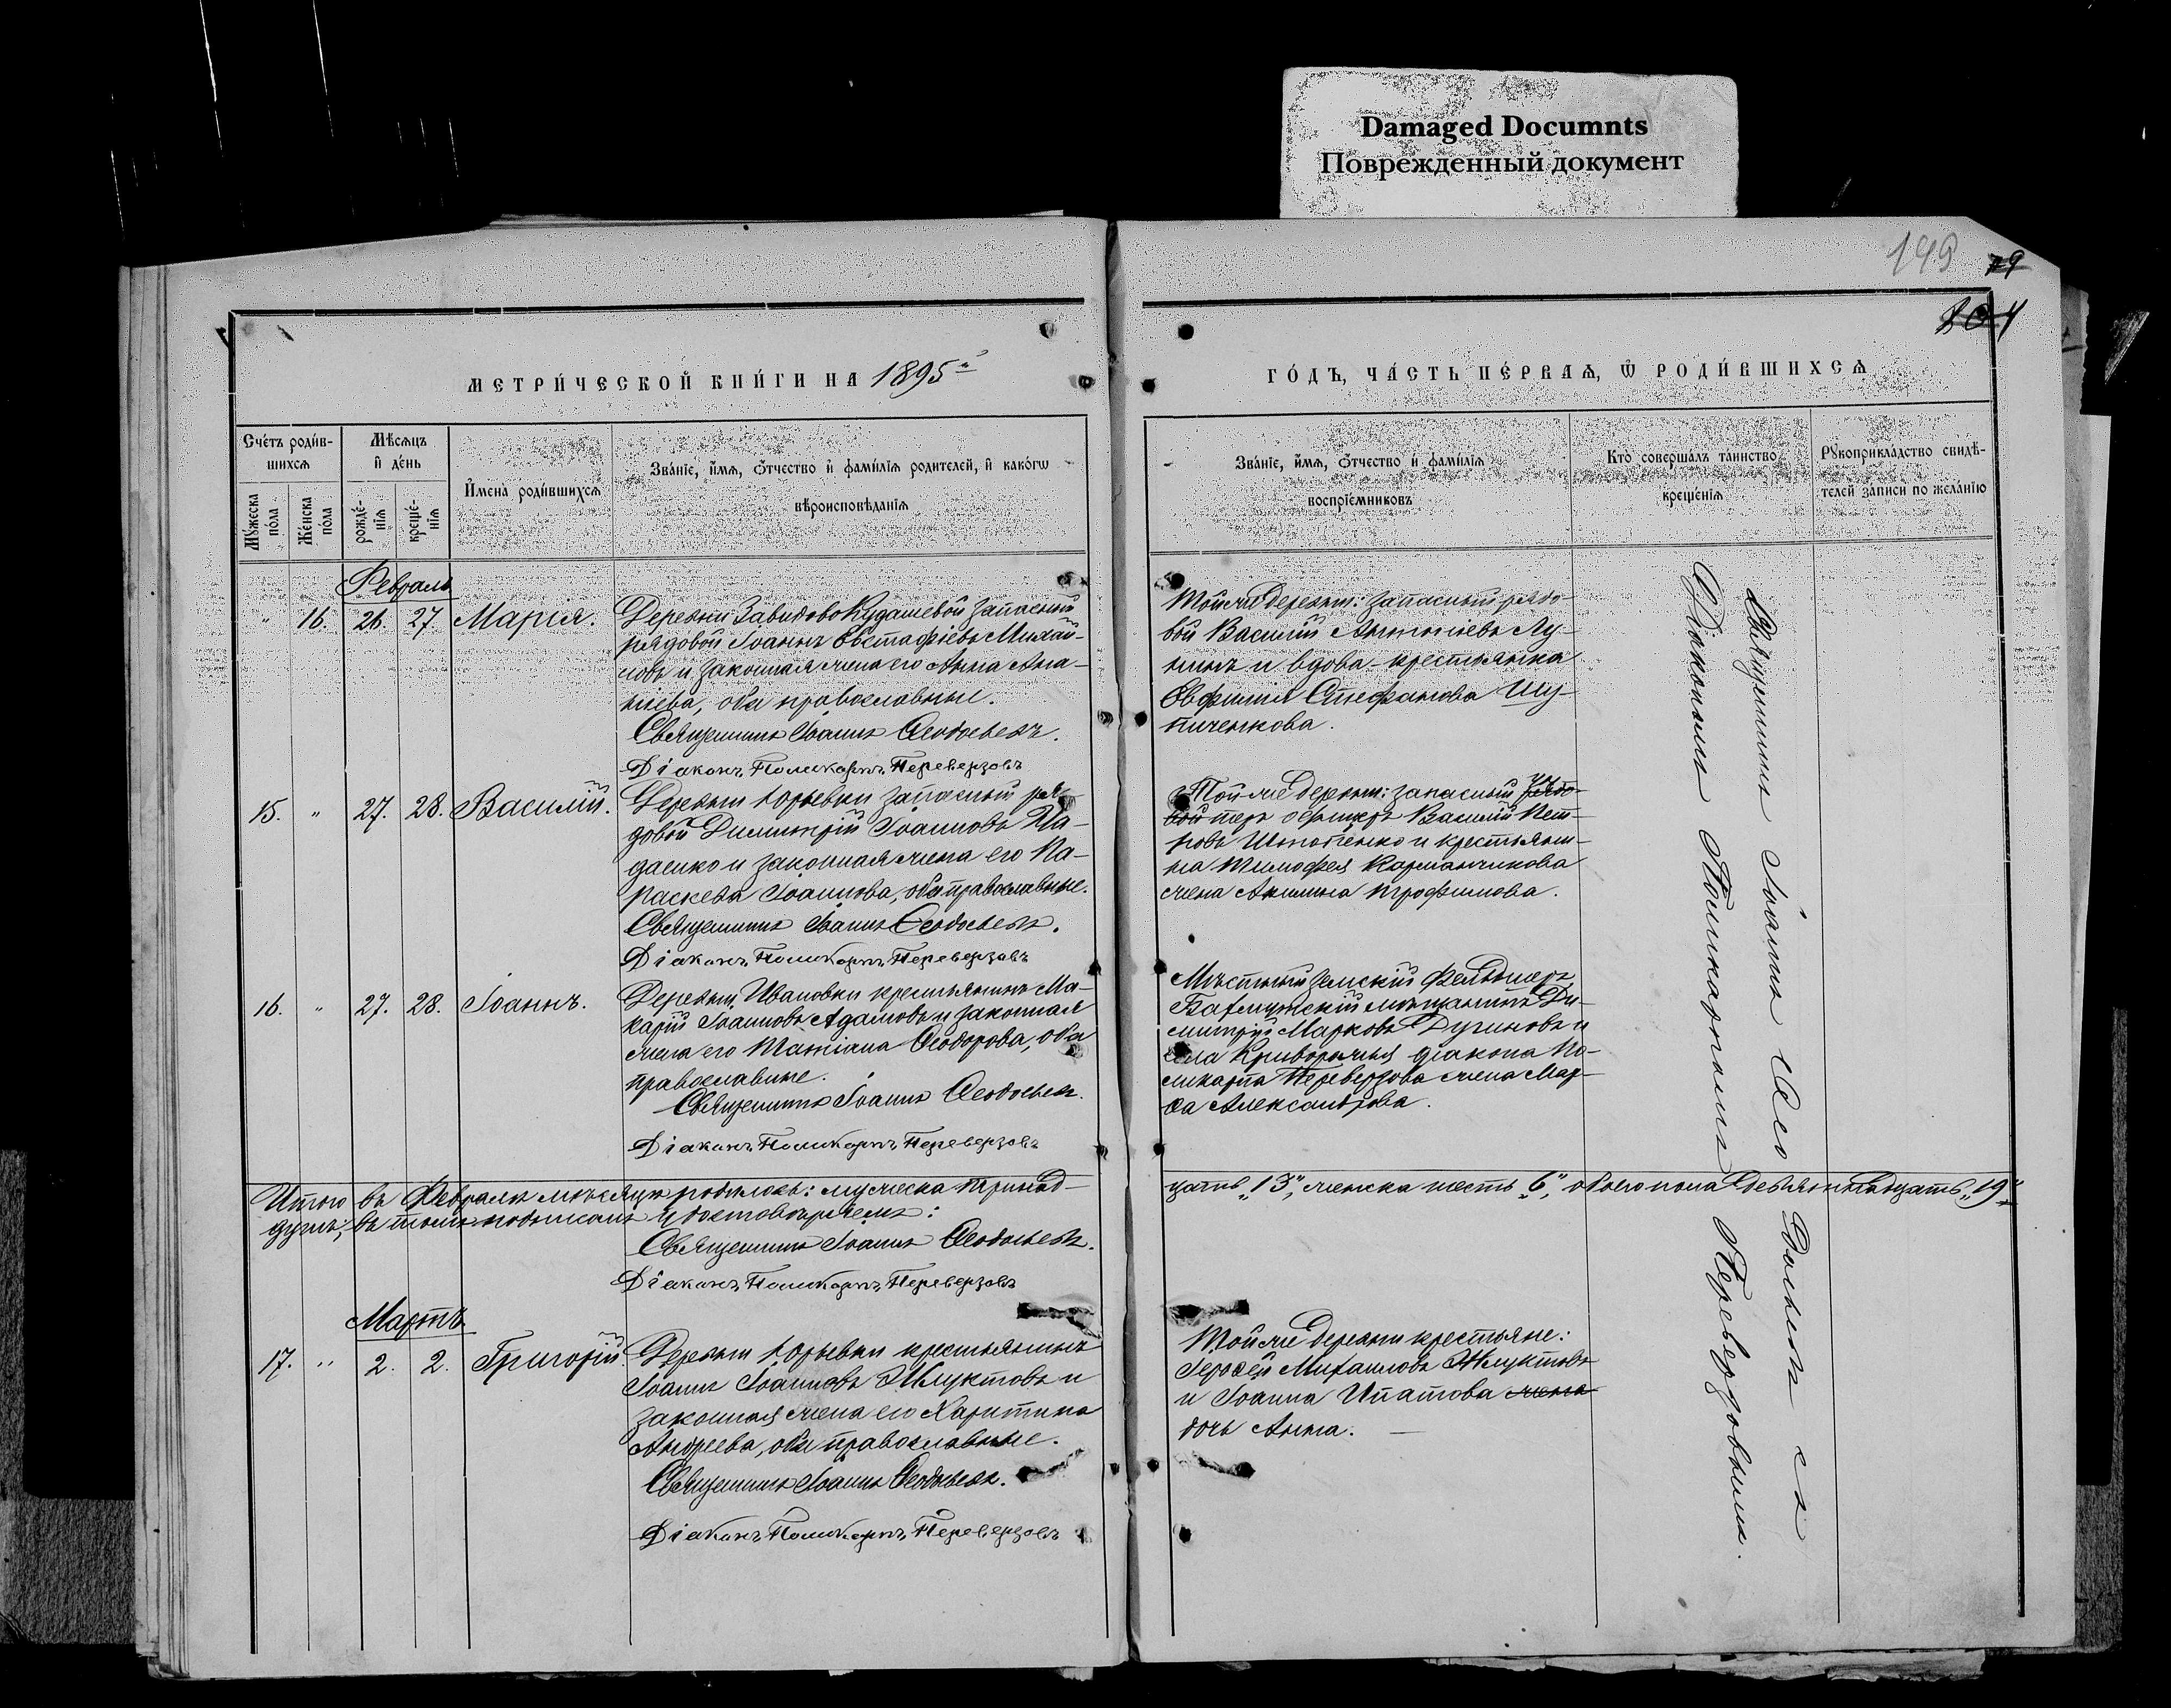 Damaged Documnts
Поврежденный документ
149 79
204
МЕТРИ́ЧЕСКОЙ КНИ́ГИ НА 1895й
ГО́ДЪ, ЧА́СТЬ ПЕ́РВАѦ, Ѿ РОДИ́ВШИХСѦ
Сче́тъ роди́в-
шихсѧ
Мѣ́сѧцъ
и҆ де́нь
Мꙋ́жеска
по́ла
Же́нска
по́ла
рожде́-
нїѧ
креще́-
нїѧ
И҆мена̀ роди́вшихсѧ
Зва́нїе, и҆́мѧ, ѻ҆́тчество и҆ фами́лїѧ родителей, и҆ како́гѡ
вѣроисповѣ́данїѧ
Зва́нїе, и҆́мѧ, ѻ҆́тчество и҆ фами́лїѧ
воспрїе́мниковъ
Кто̀ соверша́лъ та́инство
креще́нїѧ
Рꙋкоприкла́дство свидѣ́-
телей за́писи по жела́нїю
Февраль
" 16. 26. 27. Марія.
Деревни Завидово Кудашевой запасный
рядовой Іоаннъ Евстафіевъ Михай-
ловъ и законная жена его Анна Ана-
ніева, оба православные.
Священникъ Іоаннъ Ѳеодосьевъ.
Діаконъ Поликарпъ Переверзовъ
Той же деревни: запасный рядо-
вой Василій Антоніевъ Лу-
нинъ и вдова-крестьянка
Евфимія Стефанова Шу-
пиченкова.
15. " 27. 28. Василій.
Деревни Юрьевки запасный ря-
довой Димитрій Іоанновъ
и законная жена его Па-
раскева Іоаннова, оба православные.
Священникъ Іоаннъ Ѳеодосьевъ.
Діаконъ Поликарпъ Переверзовъ
Той-же деревни: запасный рядо- ун-
вой теръ офицеръ Василій Пет-
ровъ и крестьяни-
на Тимофея Карманчикова
жена Акилина Трофимова.
16. " 27. 28. Іоаннъ.
Деревни Ивановки крестьянинъ Ма-
карій Іоанновъ Адамовъ и законная
жена его Татіана Ѳеодорова, оба
православные.
Священникъ Іоаннъ Ѳеодосьевъ.
Діаконъ Поликарпъ Переверзовъ
Мѣстный земскій фельдшеръ
Бахмутскій мѣщанинъ Ди-
митрій Марковъ Дугиновъ и
села Криворожья діакона По-
ликарпа Переверзова жена Мар-
ѳа Александрова.
Итого въ Февралѣ мѣсяцѣ родилось: мужеска тринад-
цать "13", женска шесть "6", обоего пола девятнадцать "19"
душъ; въ томъ подписомъ удостовѣряемъ:
Священникъ Іоаннъ Ѳеодосьевъ.
Діаконъ Поликарпъ Переверзовъ
Мартъ
17. " 2. 2. Григорій.
Деревни Юрьевки крестьянинъ
Іоаннъ Іоанновъ Жлуктовъ и
законная жена его Харитина
Андреева, оба православные.
Священникъ Іоаннъ Ѳеодосьевъ.
Діаконъ Поликарпъ Переверзовъ
Той же деревни крестьяне:
Михаиловъ Жлуктовъ
и Іоанна Ипатова жена
дочь Анна.
Священникъ Іоаннъ Ѳеодосьевъ съ
Діакономъ Поликарпомъ Переверзовымъ.